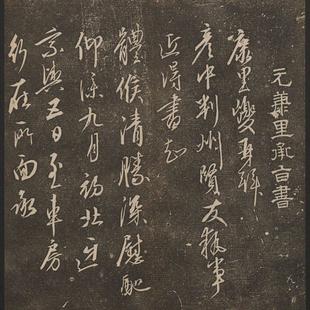 元康里承旨書
康里巎再拜
彥中判州賢友執事
近得書知
體候清勝深慰馳
仰深九月初北還
京五日至車房
行在所面承